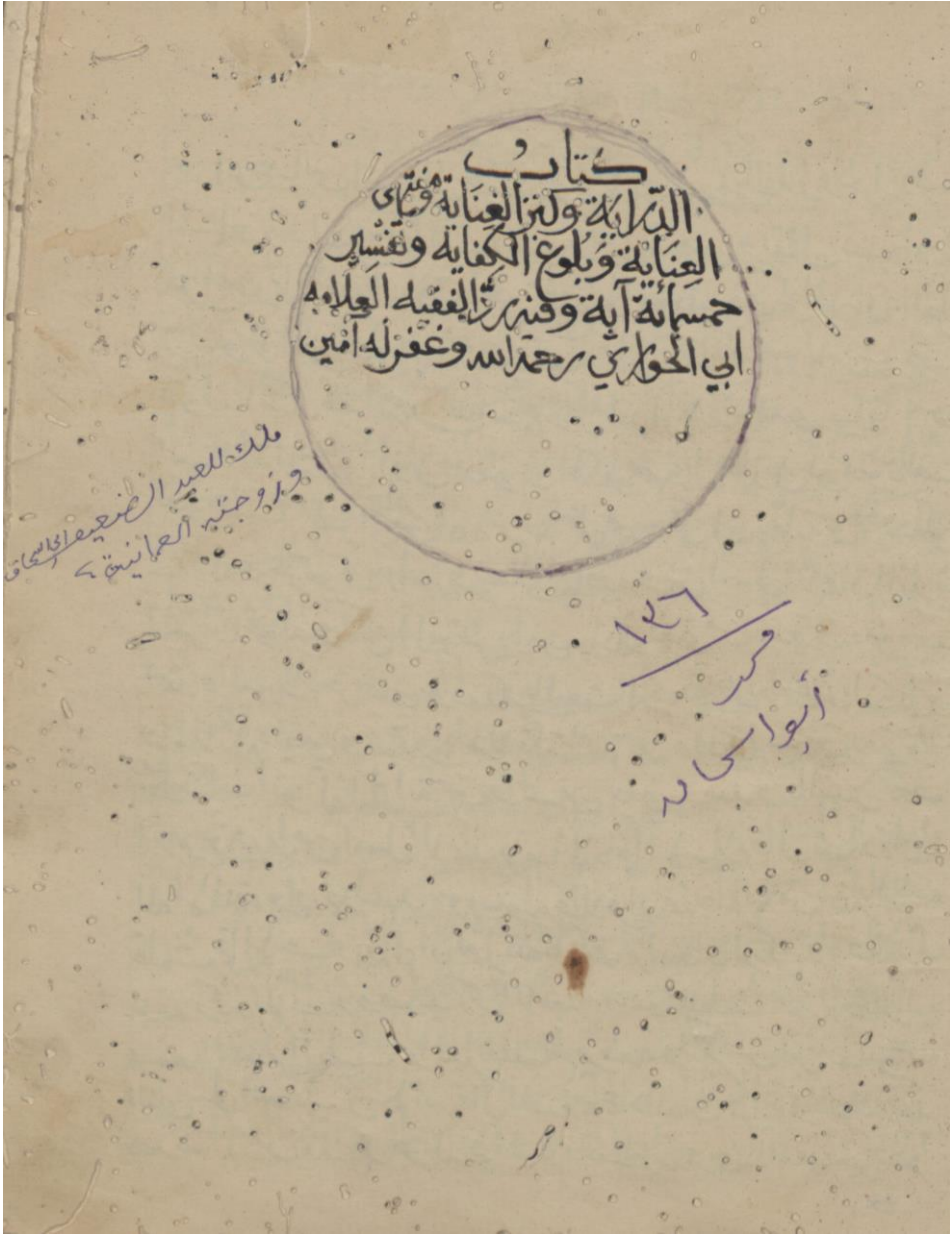 كتاب
الدراية وكنز الغناية ومنتهى
العناية وبلوغ الكفايه وتفسير
خمسمائة آية الفقيه العلامه
ابي الحواري رحمه الله وغفر له آمين
ملك للعبد الضعيف ابي اسحاق
وزوجته العمانية
١٣٦
أبو اسحاق